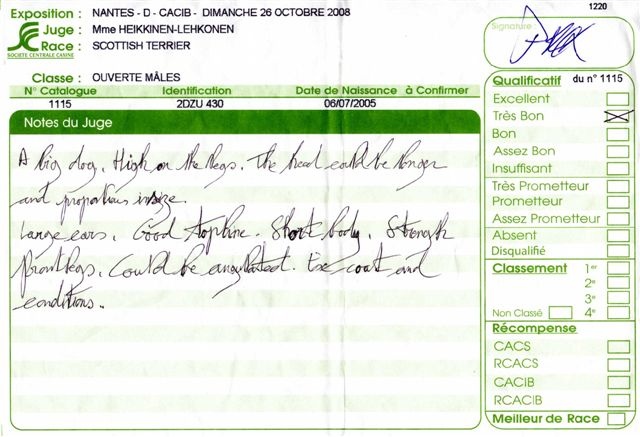 1220
Exposition : NANTES - D - CACIB - DIMANCHE 26 OCTOBRE 2008
Juge : Mme HEIKKINEN-LEHKONEN
Race : SCOTTISH TERRIER
SOCIÉTÉ CENTRALE CANINE
Signature
Classe : OUVERTE MÂLES
N° Catalogue Identification Date de Naissance à Confirmer
1115 2DZU 430 06/07/2005
Notes du Juge
A big dog. High on the legs. The head could be longer
and proportion in size.
Large ears. Good topline. Short body. Strength
front legs. Could be angulated. coat and
conditions.
Qualificatif du n° 1115
Excellent
Très Bon
Bon
Assez Bon
Insuffisant
Très Prometteur
Prometteur
Assez Prometteur
Absent
Disqualifié
Classement 1er
2e
3e
Non Classé 4e
Récompense
CACS
RCACS
CACIB
RCACIB
Meilleur de Race